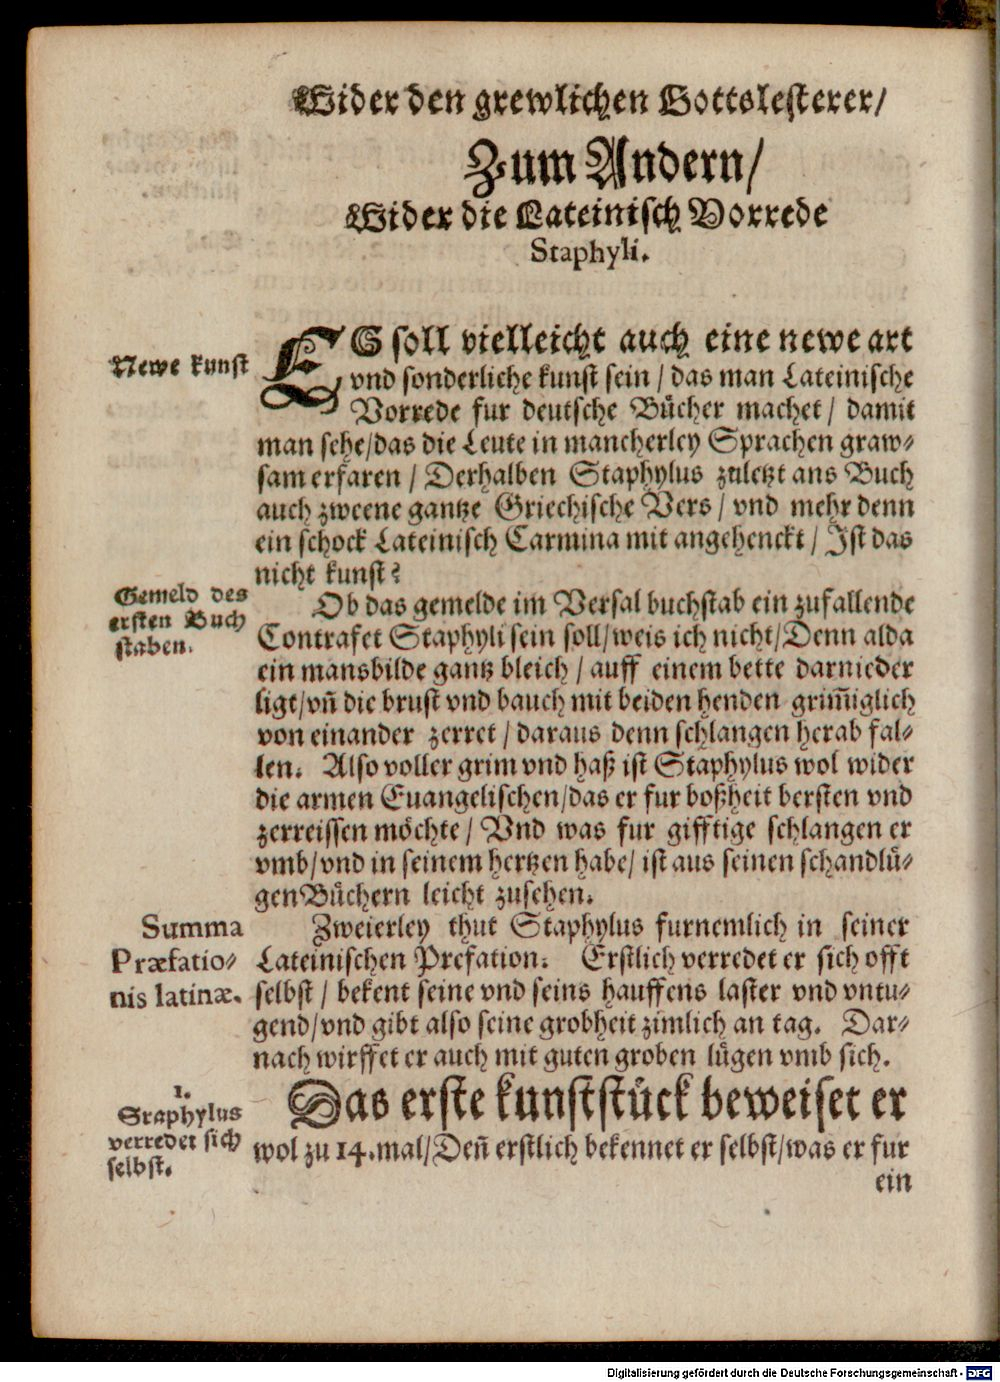 Wider den grewlichen Gottslesterer/
Zum Andern/
Wider die Lateinisch Vorrede
Staphyli.
Newe kunst
ES soll vielleicht auch eine newe art
vnd sonderliche kunst sein / das man Lateinische
Vorrede fur deutsche Bücher machet / damit
man sehe/das die Leute in mancherley Sprachen graw⸗
sam erfaren / Derhalben Staphylus zuletzt ans Buch
auch zweene gantze Griechische Vers / vnd mehr denn
ein schock Lateinisch Carmina mit angehenckt / Ist das
nicht kunst?
Gemeld des
ersten Buch
staben.
Ob das gemelde im Versal buchstab ein zufallende
Contrafet Staphyli sein soll/weis ich nicht/Denn alda
ein mansbilde gantz bleich / auff einem bette darnieder
ligt/vñ die brust vnd bauch mit beiden henden grim̃iglich
von einander zerret / daraus denn schlangen herab fal⸗
len. Also voller grim vnd haß ist Staphylus wol wider
die armen Euangelischen/das er fur boßheit bersten vnd
zerreissen möchte / Vnd was fur gifftige schlangen er
vmb/vnd in seinem hertzen habe/ ist aus seinen schandlü⸗
gen Büchern leicht zusehen.
Summa
Præfatio⸗
nis latinæ.
Zweierley thut Staphylus furnemlich in seiner
Lateinischen Prefation. Erstlich verredet er sich offt
selbst / bekent seine vnd seins hauffens laster vnd vntu⸗
gend/vnd gibt also seine grobheit zimlich an tag. Dar⸗
nach wirffet er auch mit guten groben lügen vmb sich.
1.
Sraphylus
verredet sich
selbst.
Das erste kunststück beweiset er
wol zu 14.mal/Den̄ erstlich bekennet er selbst/was er fur
ein
Digitalisierung gefördert durch die Deutsche Forschungsgemeinschaft - DFG